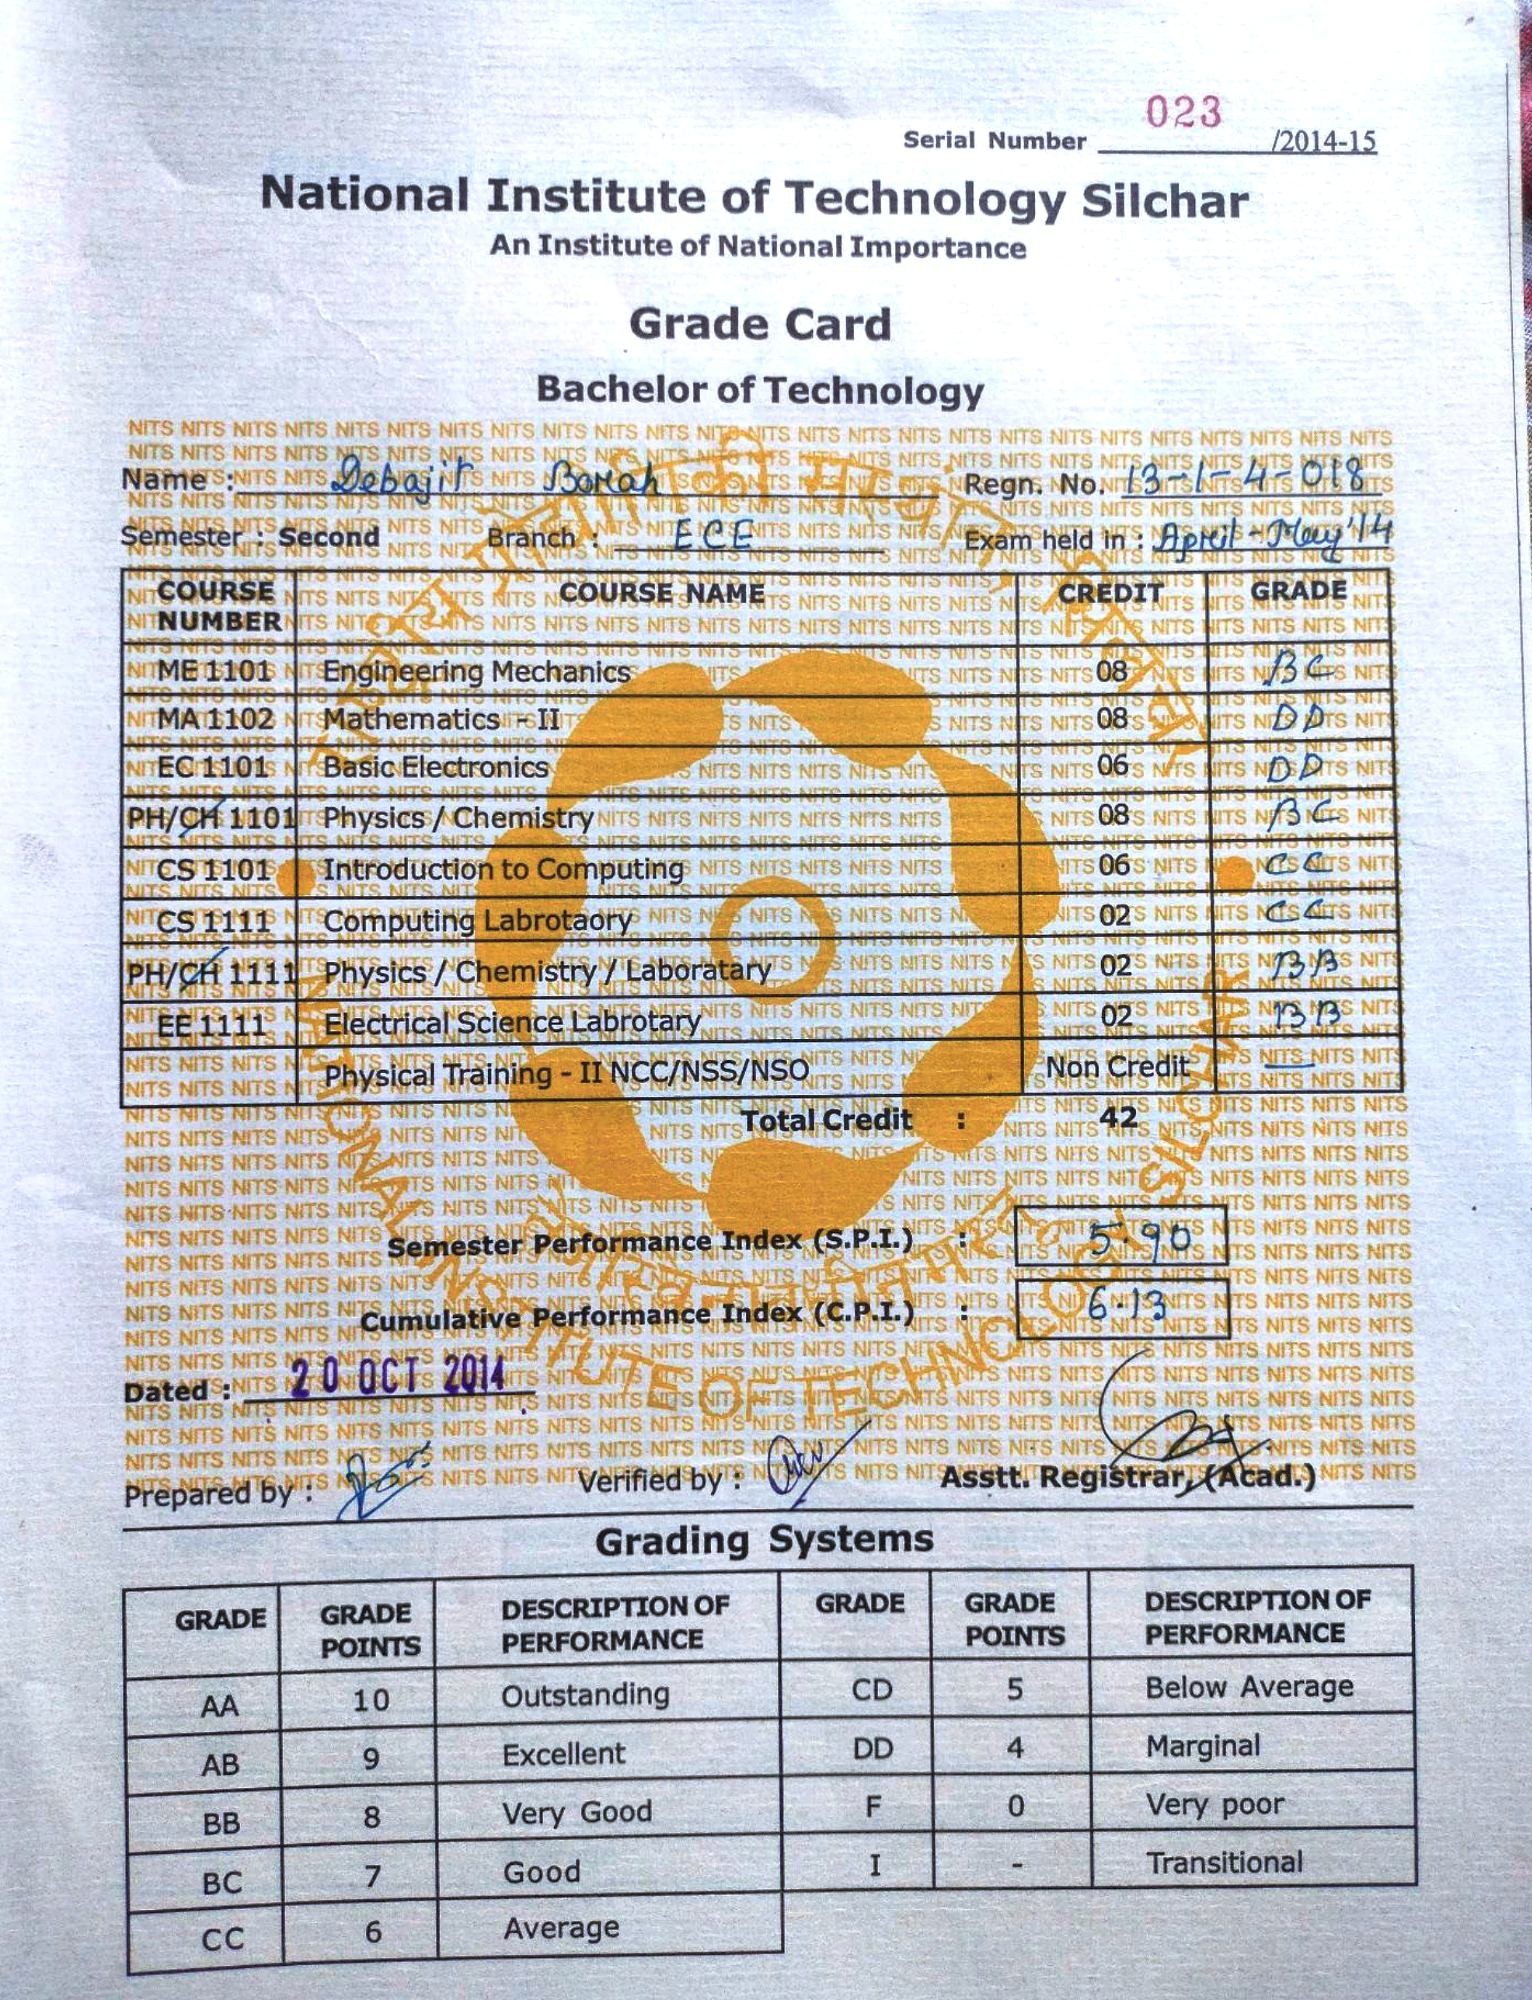 023
Serial Number /2014-15
National Institute of Technology Silchar
An Institute of National Importance
Grade Card
Bachelor of Technology
Name : Debajit Borah Regn. No. 13-1-4-018
Semester : Second Branch : ECE Exam held in : April-May'14
COURSE NUMBER COURSE NAME CREDIT GRADE
ME 1101 Engineering Mechanics 08 BC
MA 1102 Mathematics - II 08 DD
EC 1101 Basic Electronics 06 DD
PH/CH 1101 Physics / Chemistry 08 BC
CS 1101 Introduction to Computing 06 CC
CS 1111 Computing Labrotaory 02 CC
PH/CH 1111 Physics / Chemistry / Laboratary 02 BB
EE 1111 Electrical Science Labrotary 02 BB
Physical Training - II NCC/NSS/NSO Non Credit —
Total Credit : 42
Semester Performance Index (S.P.I.) : 5.90
Cumulative Performance Index (C.P.I.) : 6.13
Dated : 20 OCT 2014
NATIONAL INSTITUTE OF TECHNOLOGY SILCHAR
Prepared by : Verified by : Asstt. Registrar, (Acad.)
Grading Systems
GRADE GRADE POINTS DESCRIPTION OF PERFORMANCE GRADE GRADE POINTS DESCRIPTION OF PERFORMANCE
AA 10 Outstanding CD 5 Below Average
AB 9 Excellent DD 4 Marginal
BB 8 Very Good F 0 Very poor
BC 7 Good I - Transitional
CC 6 Average